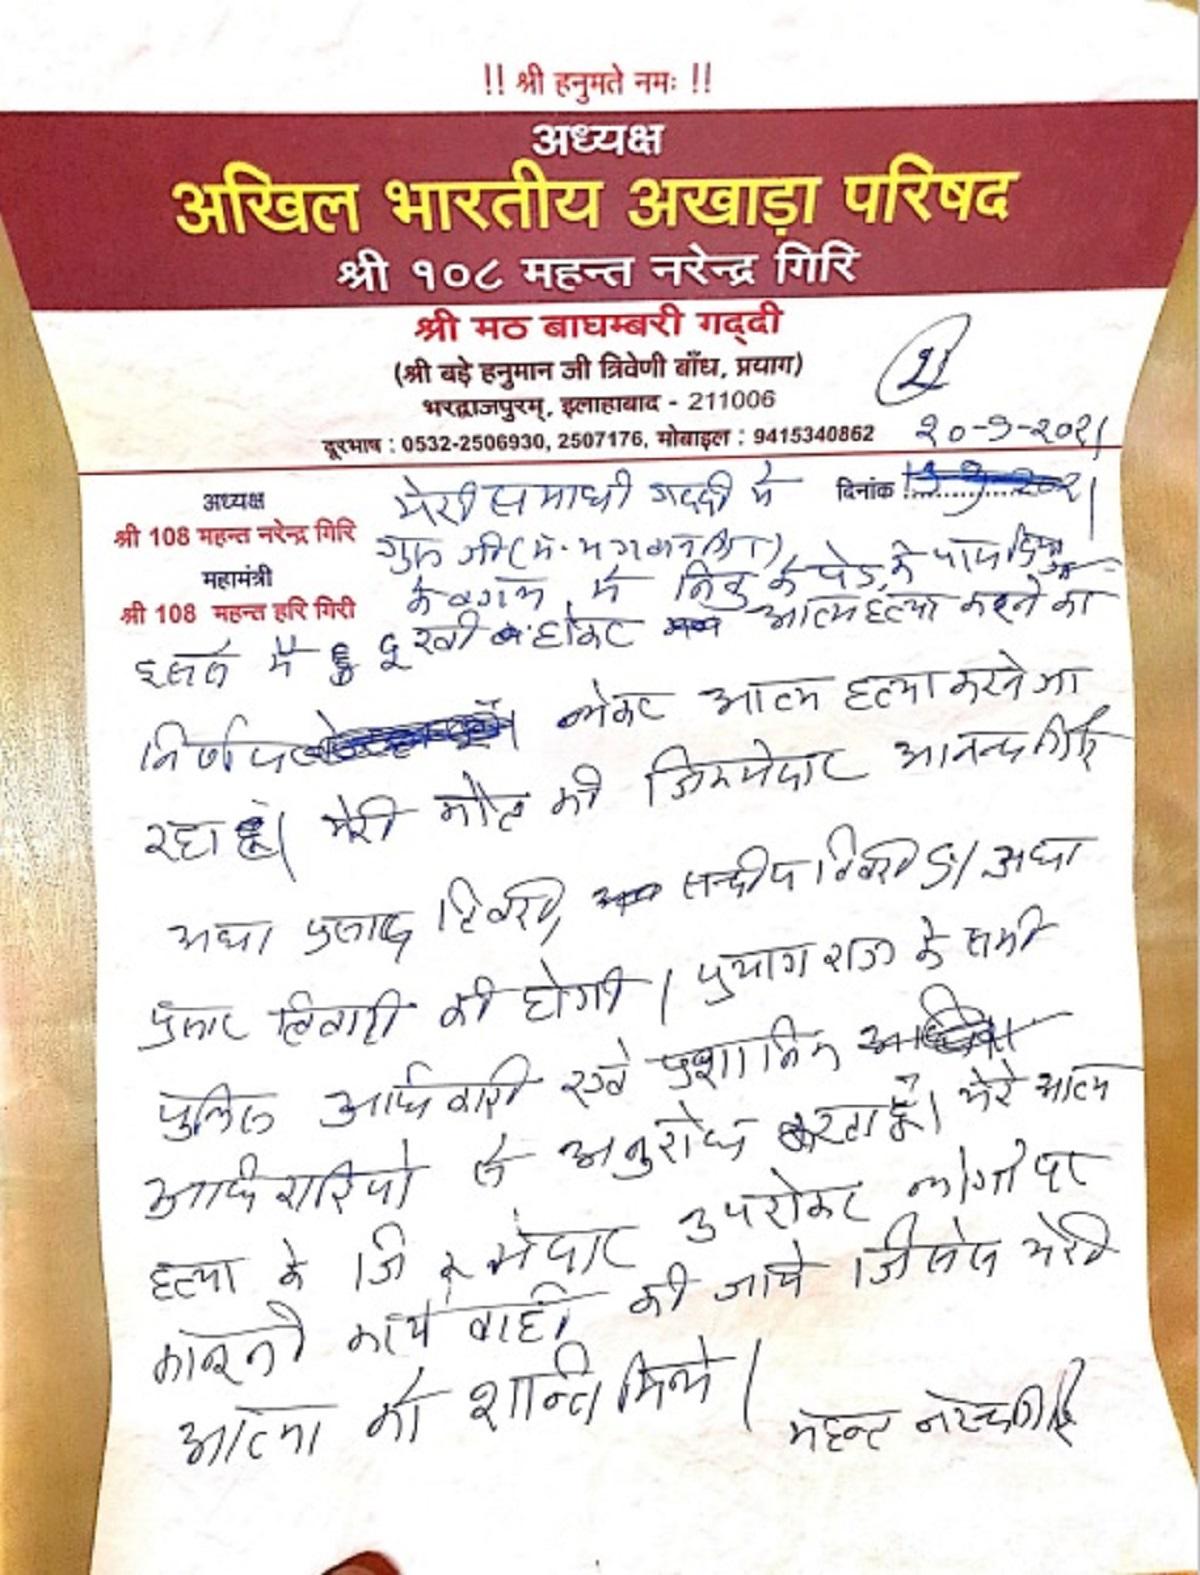 !! श्री हनुमते नमः !!
अध्यक्ष
अखिल भारतीय अखाड़ा परिषद
श्री १०८ महन्त नरेन्द्र गिरि
श्री मठ बाघम्बरी गद्दी
(श्री बड़े हनुमान जी त्रिवेणी बाँध, प्रयाग)
भरद्वाजपुरम्, इलाहाबाद - 211006
दूरभाष : 0532-2506930, 2507176, मोबाइल : 9415340862
२०-९-२०२१
दिनांक
अध्यक्ष
श्री 108 महन्त नरेन्द्र गिरि
महामंत्री
श्री 108 महन्त हरि गिरी
मेरी समाधी गद्दी मे
गुरु जी
के बगल में निबु के पेड़ के पास
इसलि मैं दुखी होकर आत्महत्या करने का
निर्णय लेकर आत्म हत्या करने जा
रहा हूँ। मेरी मौत की जिम्मेदार आनन्द गिरि
अधा प्रसाद तिवारी, सन्दीप तिवारी S/ अधा
प्रसाद तिवारी की होगी। प्रयागराज के सभी
पुलिस अधिकारी एवं प्रशानिक
अधिकारियो से अनुरोध करता हूँ। मेरे आत्म
हत्या के जिम्मेदार उपरोक्त लोगो पर
कानूनी कार्यवाही की जाये जिससे मेरी
आत्मा को शान्ति मिले।
महन्त नरेन्द्र गिरि